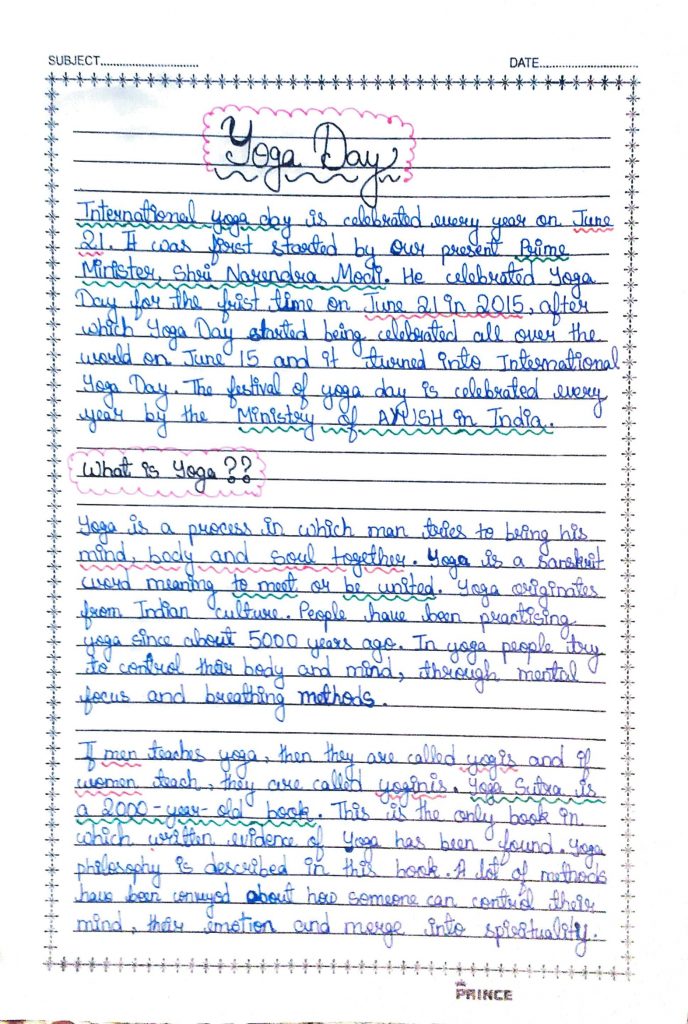 SUBJECT............................ DATE............................
Yoga Day
International yoga day is celebrated every year on June
21. It was first started by our present Prime
Minister, Shri Narendra Modi. He celebrated Yoga
Day for the frist time on June 21 in 2015, after
which Yoga Day started being celebrated all over the
world on June 15 and it turned into International
Yoga Day. The festival of yoga day is celebrated every
year by the Ministry of AYUSH in India.
What is Yoga ??
Yoga is a process in which man tries to bring his
mind, body and soul together. Yoga is a sanskrit
word meaning to meet or be united. Yoga originates
from Indian culture. People have been practising
yoga since about 5000 years ago. In yoga people try
to control their body and mind, through mental
focus and breathing methods.
If men teaches yoga, then they are called yogis and if
women teach, they are called yoginis. Yoga Sutra is
a 2000-year-old book. This is the only book in
which written evidence of Yoga has been found. Yoga
philosophy is described in this book. A lot of methods
have been conveyed about how someone can control their
mind, their emotion and merge into spirituality.
PRINCE